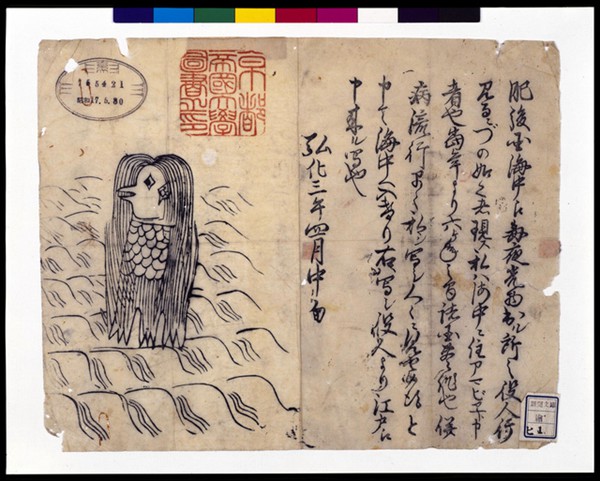 肥後国海中え毎夜光物出ル所之役人行
見るニづの如く者現ス私ハ海中ニ住アマビヱト申
者也当年より六ヶ年之間諸国豊作也併
病流行早々私シ写シ人々ニ見セ候得と
申て海中へ入けり右写シ役人より江戸え
申来ル写也
弘化三年四月中旬
京都
帝國大學
圖書之印
昭和17.5.30
ヒ 1